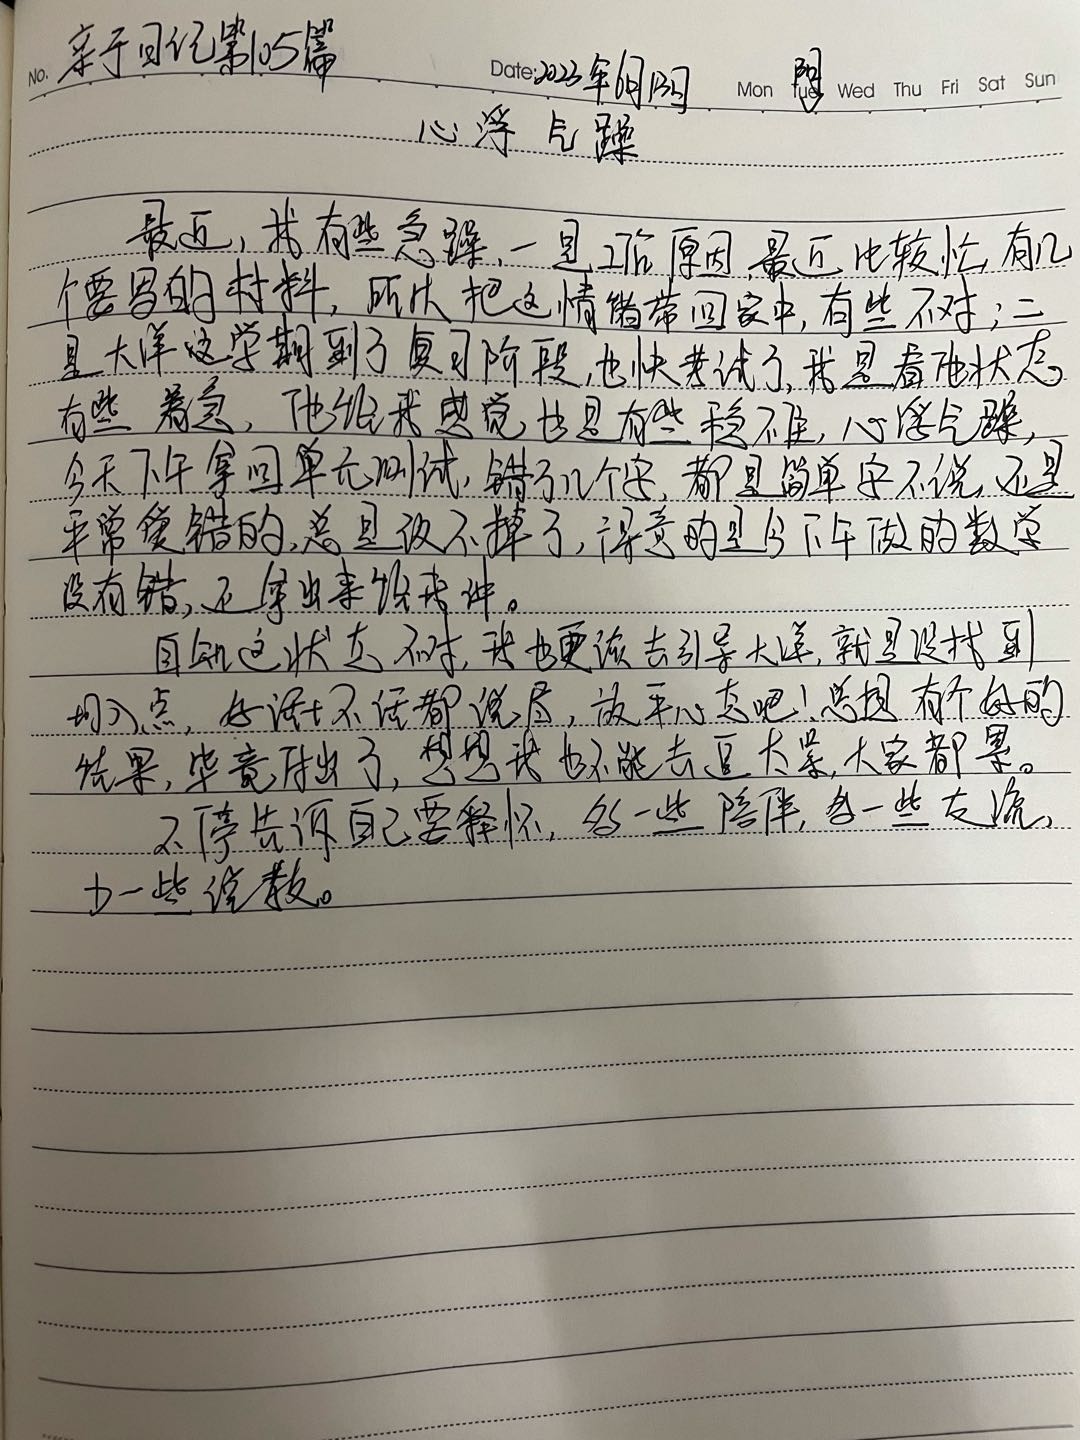 No. 亲子日记第105篇
Date: 2023年6月13日 Mon Tue Wed Thu Fri Sat Sun
心浮气躁
最近,我有些急躁,一是工作原因,最近比较忙,有几
个要写的材料,所以把这情绪带回家中,有些不对;二
是大洋这学期到了复习阶段,也快考试了,我是看他状态
有些着急,他给我感觉也是有些稳不住,心浮气躁,
今天下午拿回单元测试,错了几个字,都是简单字不说,还是
平常错的,总是改不掉了,得意的是今下午做的数学
没有错,还拿出来给我讲。
自知这状态不对,我也更该去引导大洋,就是没找到
切入点,好话不话都说尽,放平心态吧!总想有个好的
结果,毕竟付出了,想想我也不能去逼太紧,大家都累。
不停告诉自己要释怀,多一些陪伴,多一些交流,
少一些说教。